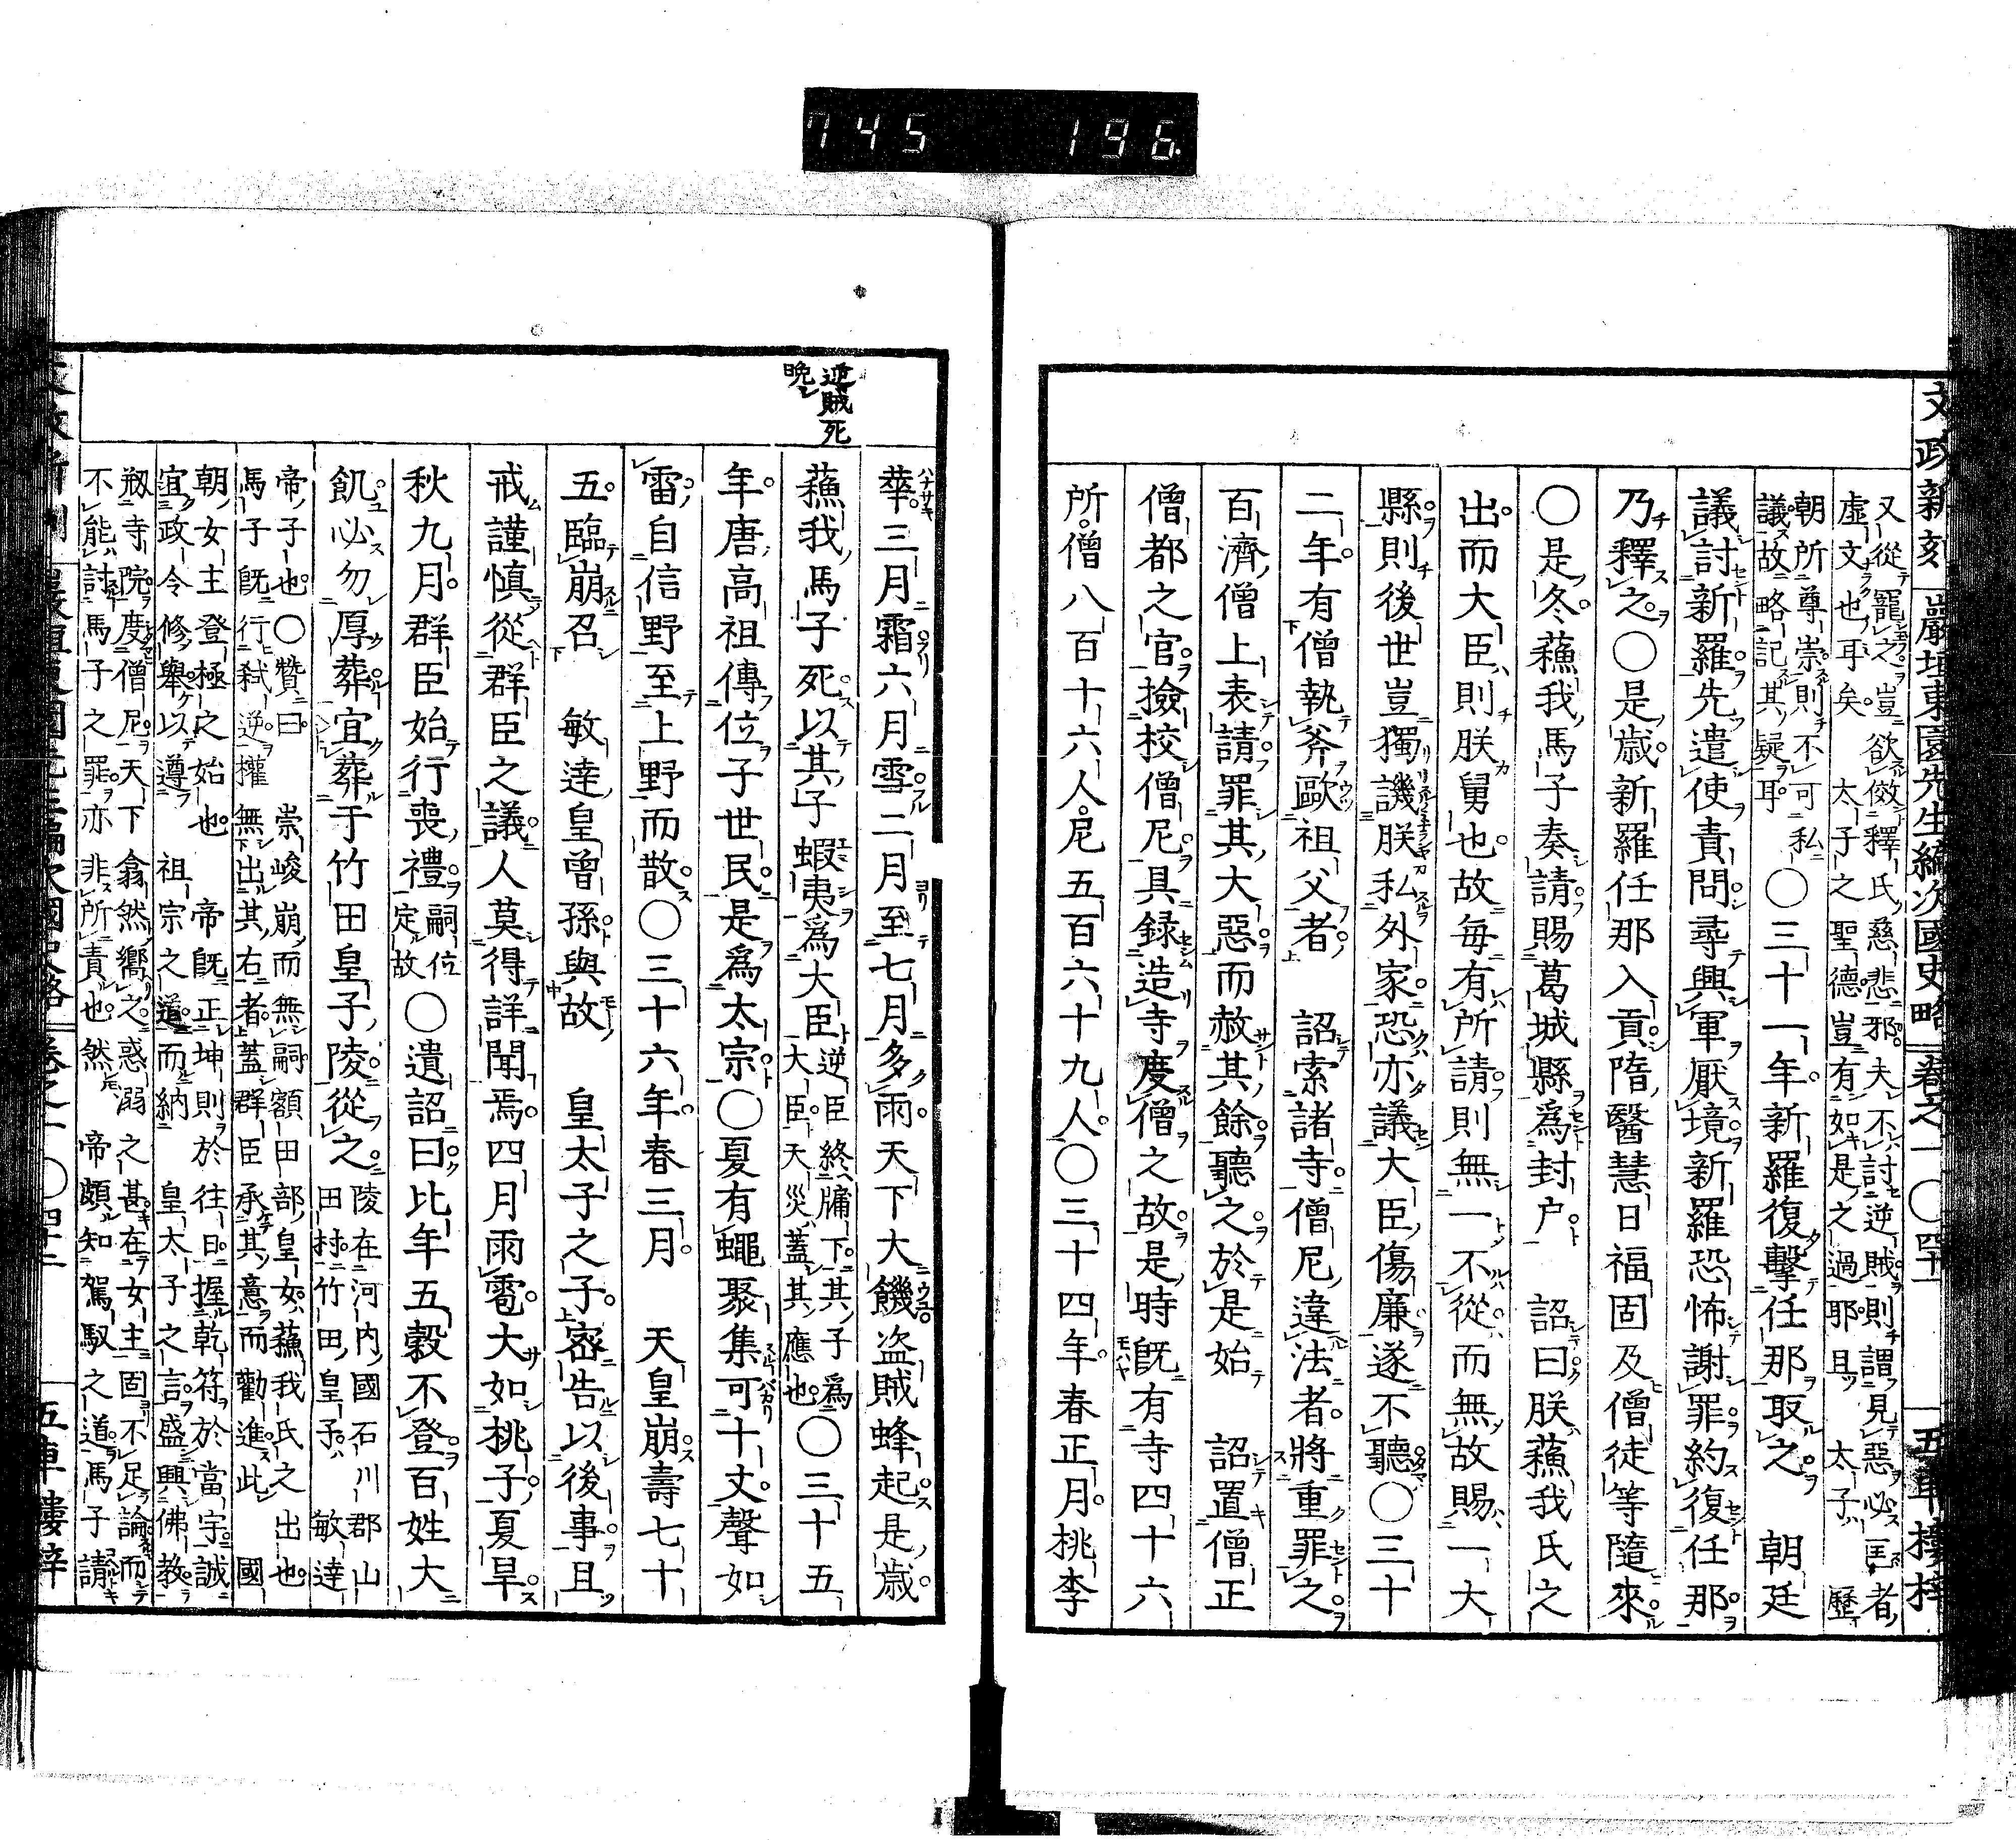 745 196
文政新刻 巖垣東園先生編次國史略 卷之一 〇四十一 五車樓梓
又從寵之豈欲傚釋氏慈悲邪夫不討逆賊則謂見惡必匡者
虛文也耳矣 太子之聖德豈有如是之過耶且 太子歷
朝所尊崇則不可私
議故略記其疑耳
〇三十一年新羅復擊任那取之 朝廷
議討新羅先遣使責問尋興軍厭境新羅恐怖謝罪約復任那
乃釋之〇是歲新羅任那入貢隋醫慧日福固及僧徒等隨來
〇是冬蘓我馬子奏請賜葛城縣為封戶 詔曰朕蘓我氏之
出而大臣則朕舅也故每有所請則無一不從而無故賜一大
縣則後世豈獨譏朕私外家恐亦議大臣傷廉遂不聽〇三十
二年有僧執斧歐祖父者 詔索諸寺僧尼違法者將重罪之
百濟僧上表請罪其大惡而赦其餘聽之於是始 詔置僧正
僧都之官撿校僧尼具録造寺度僧之故是時既有寺四十六
所僧八百十六人尼五百六十九人〇三十四年春正月桃李
華三月霜六月雪二月至七月多雨天下大饑盗賊蜂起是歲
逆賊死
晩
蘓我馬子死以其子蝦夷為大臣
逆臣終牖下其子為
大臣天災蓋其應也
〇三十五
年唐高祖傳位子世民是為太宗〇夏有蠅聚集可十丈聲如
雷自信野至上野而散〇三十六年春三月 天皇崩壽七十
五臨崩召 敏達皇曾孫與故 皇太子之子密告以後事且
戒謹慎從群臣之議人莫得詳聞焉四月雨雹大如桃子夏旱
秋九月群臣始行喪禮
嗣位
定故
〇遺詔曰比年五穀不登百姓大
飢必勿厚葬宜葬于竹田皇子陵從之
陵在河内國石川郡山
田村竹田皇子敏達
帝子也〇贊曰 崇峻崩而無嗣額田部皇女蘓我氏之出也
馬子既行弒逆權無出其右者蓋群臣承其意而勸進此 國
朝女主登極之始也 帝既正坤則於往日握乾符於當宇誠
宜政令修舉以遵 祖宗之道而納 皇太子之言盛興佛教
剏寺院度僧尼天下翕然嚮之惑溺之甚在女主固不足論而
不能討馬子之罪亦非所責也然 帝頗知駕馭之道馬子請
五車樓梓